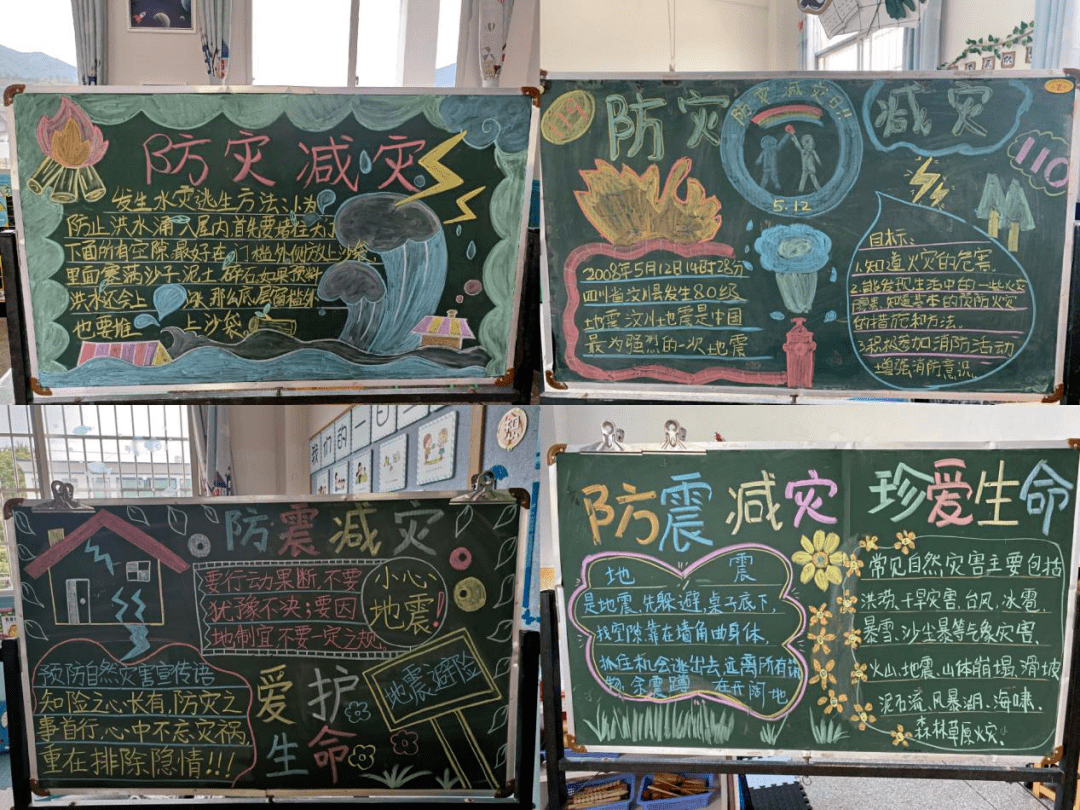 防灾减灾
发生水灾逃生方法:1.为
防止洪水涌入屋内,首先要堵住大门
下面所有空隙.最好在门槛外侧放上沙袋,
里面塞满沙子泥土 碎石,如果预料
洪水还会上 涨,那么底层窗槛外
也要堆 上沙袋
防灾
防灾减灾日!!
5.12
减灾
110
2008年5月12日14时28分
四川省汶川县发生8.0级
地震,汶川地震是中国
最为强烈的一次地震
目标:
1.知道火灾的危害.
2.能发现生活中的一些火灾
隐患,知道基本的预防火灾
的措施和方法.
3.积极参加消防活动
增强消防意识.
我们的一日
防震减灾
要行动果断,不要
犹豫不决;要因
地制宜,不要一定之规.
小心
地震!
预防自然灾害宣传语
知险之心长有,防灾之
事首行,心中不怠灾祸,
重在排除隐情!!!
爱护
生命
地震避险
防震减灾 珍爱生命
地 震
是地震,先躲避,桌子底下,
找空隙,靠在墙角曲身体,
抓住机会逃出去,远离所有
物,余震蹲 在开阔地
常见自然灾害主要包括
洪涝、干旱灾害、台风、冰雹、
暴雪、沙尘暴等气象灾害,
火山、地震、山体崩塌、滑坡
泥石流、风暴潮、海啸、
森林草原火灾、